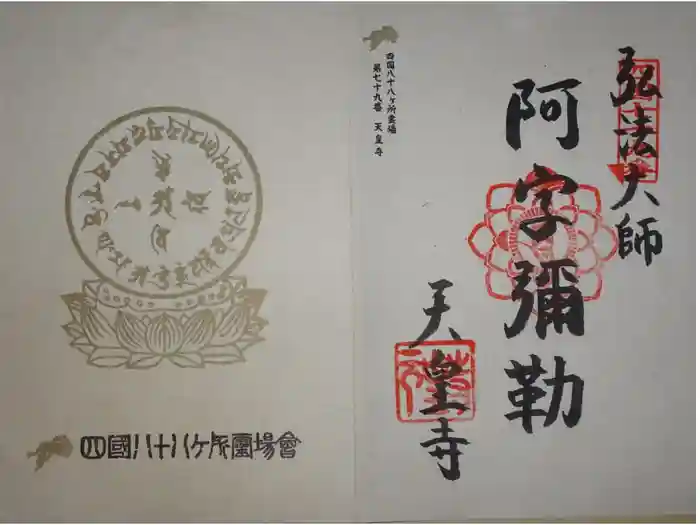 弘法大師
阿字彌勒
天皇寺
四国八十八ヶ所霊場
第七十九番 天皇寺
四國八十八ケ所靈場會